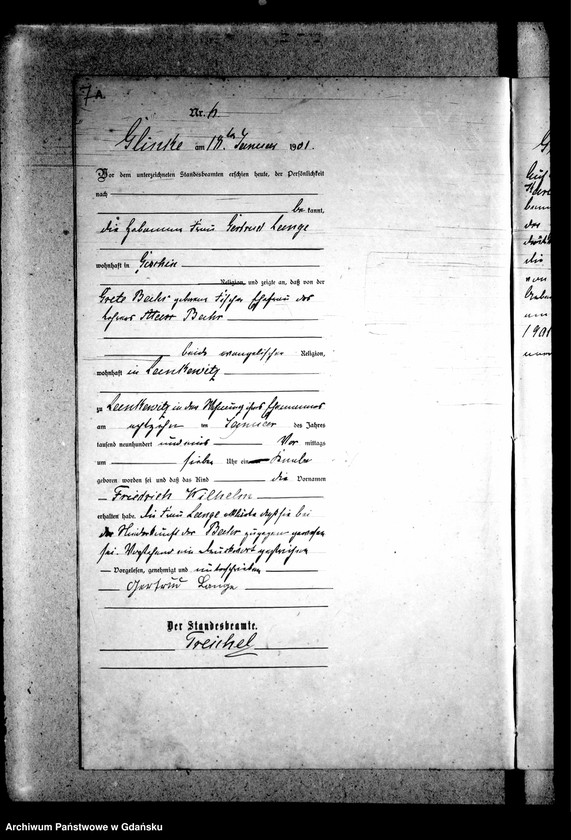 7A.
Nr. 6
Glintke am 18ten Januar 1901.
Vor dem unterzeichneten Standesbeamten erschien heute, der Persönlichkeit
nach
be kannt,
die Hebamme Frau Gertrud Lange
wohnhaft in
Religion, und zeigte an, daß von der
Grete Behr geborene Fischer Ehefrau des
Behr
beide evangelischer Religion,
wohnhaft in Leenkewitz
zu Leenkewitz in der Wohnung ihres Ehemannes
am achtzehn ten Januar des Jahres
tausend neunhundert und eins Vor mittags
um sieben Uhr ein Knabe
geboren worden sei und daß das Kind die Vornamen
Friedrich Wilhelm
erhalten habe. Die Frau Lange erklärte daß sie bei
der Niederkunft der Behr zugegen gewesen
sei. Vorstehend ein Druckwort gestrichen
Vorgelesen, genehmigt und unterschrieben
Gertrud Lange
Der Standesbeamte.
Treichel
1901
Archiwum Państwowe w Gdańsku